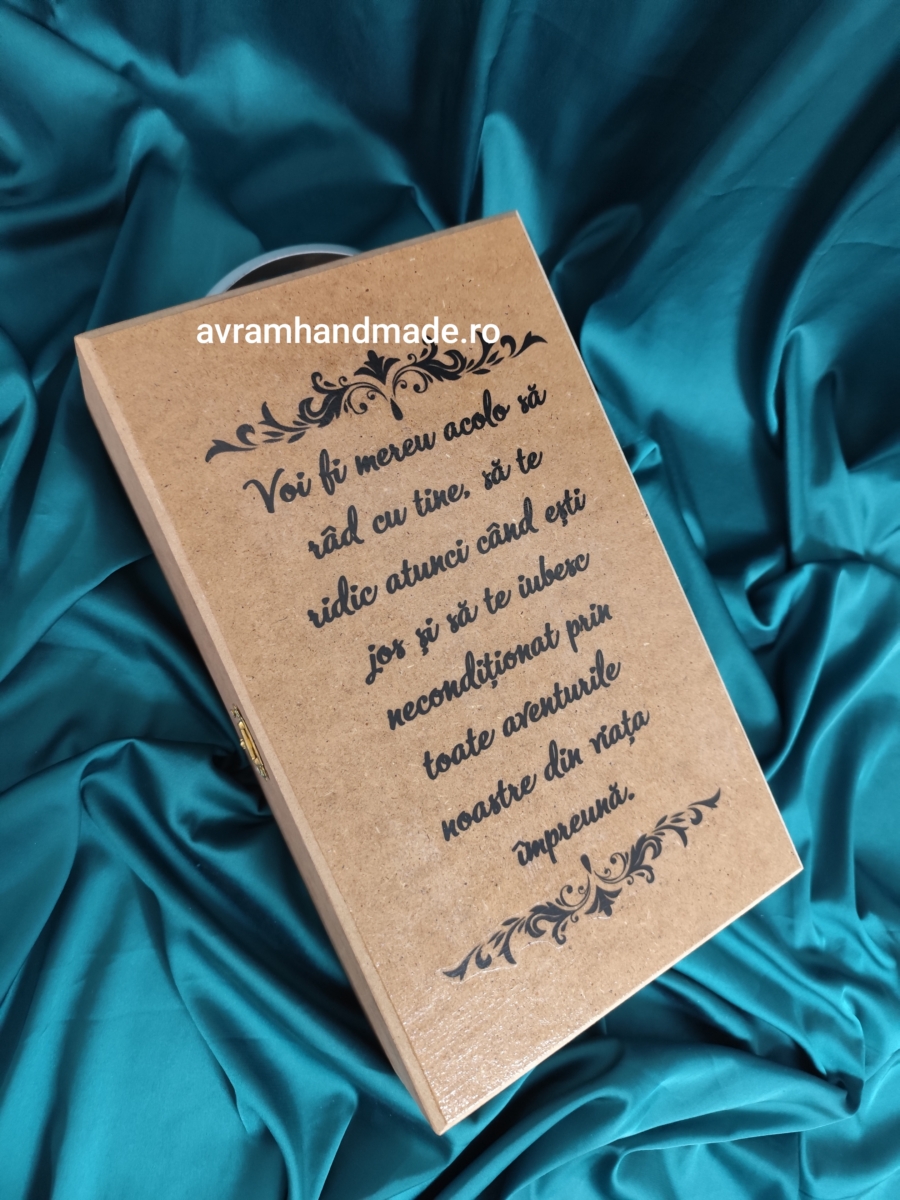 avramhandmade.ro
Voi fi mereu acolo să
râd cu tine, să te
ridic atunci când ești
jos și să te iubesc
necondiționat prin
toate aventurile
noastre din viața
împreună.